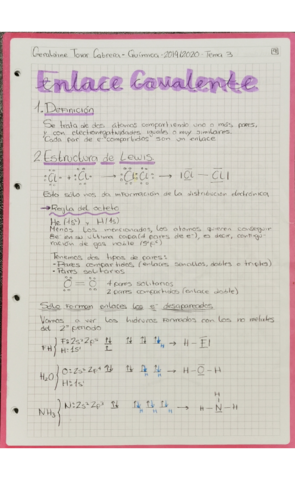 Geraldine Torre Cabrera - Química - 2019/2020 - Tema 3
Enlace Covalente
1. Definición
Se trata de dos átomos compartiendo uno o más pares,
y con electronegatividades iguales o muy similares.
Cada par de e⁻ compartidos son un enlace
2. Estructura de Lewis
Esto sólo nos da información de la distribución electrónica
→ Regla del octeto
He (1s²) y H (1s)
Menos los mencionados, los átomos quieren conseguir
8e⁻ en su última capa (4 pares de e⁻), es decir, configu-
ración de gas noble (s²p⁶)
Tenemos dos tipos de pares:
- Pares compartidos (enlaces sencillos, dobles o triples)
- Pares solitarios
O = O 4 pares solitarios
2 pares compartidos (enlace doble)
Sólo forman enlaces los e⁻ desapareados
Vamos a ver los hidruros formados con los no metales
del 2º periodo
FH { F: 2s² 2p⁵ → H - F
H: 1s¹
H₂O { O: 2s² 2p⁴ → H - O - H
H: 1s¹
H
NH₃ { N: 2s² 2p³ → H - N - H